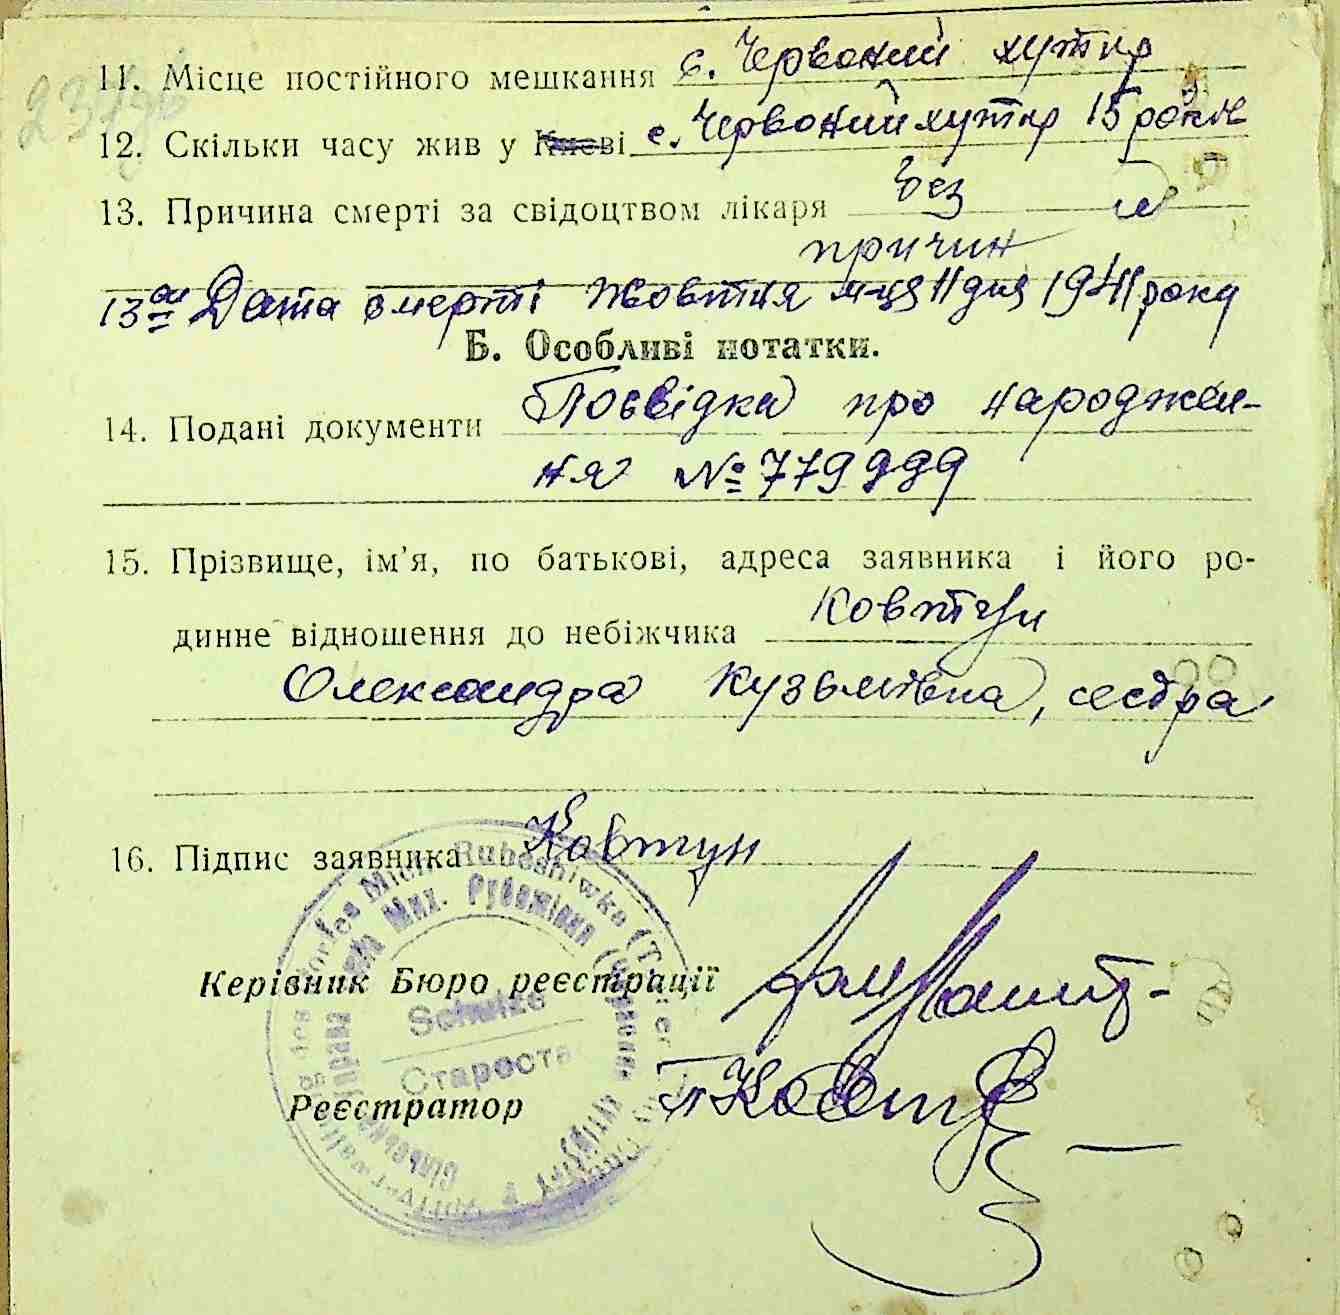 11. Місце постійного мешкання с. Червоний хутір
12. Скільки часу жив у Києві с. Червоний хутір 15 років
13. Причина смерті за свідоцтвом лікаря без
причин
13а Дата смерті Жовтня м-ця 11 дня 1941 року
Б. Особливі нотатки.
14. Подані документи Посвідка про народжен-
ня № 779999
15. Прізвище, ім'я, по батькові, адреса заявника і його ро-
динне відношення до небіжчика Ковтун
Олександра Кузьмівна, сестра
16. Підпис заявника Ковтун
Керівник Бюро реєстрації
Schulze
Староста
Реєстратор